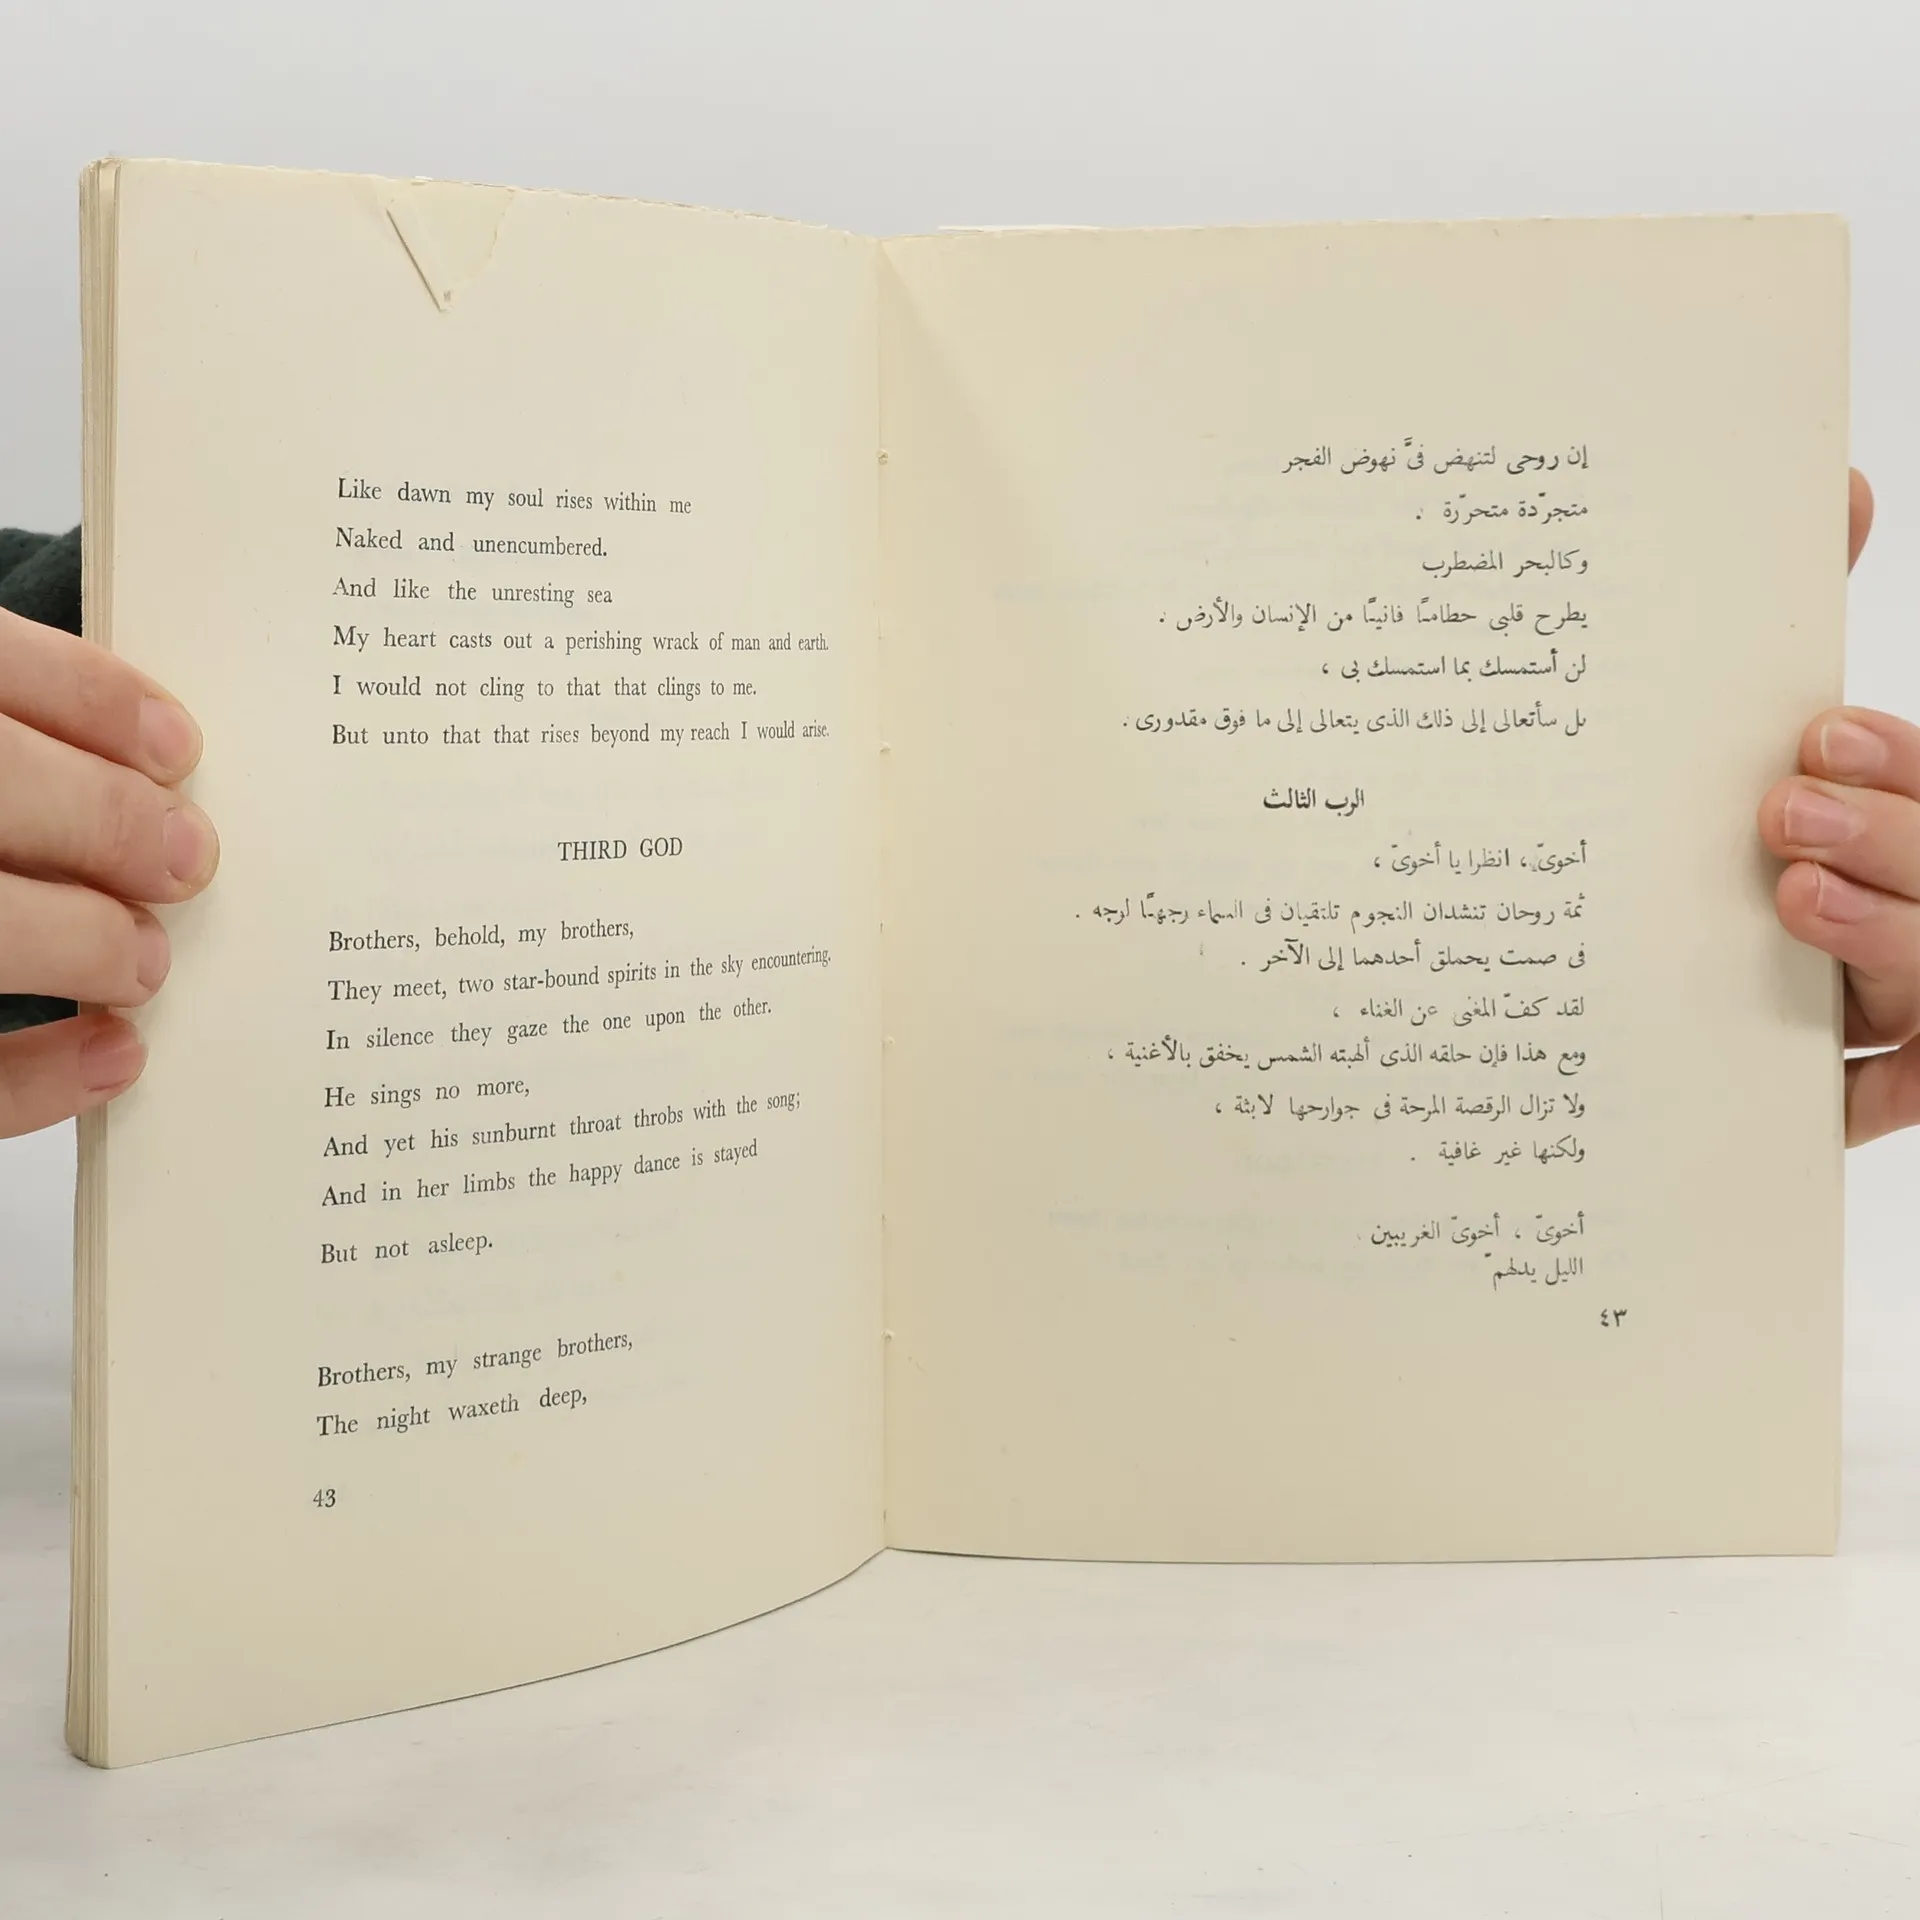 Like dawn my soul rises within me
Naked and unencumbered.
And like the unresting sea
My heart casts out a perishing wrack of man and earth.
I would not cling to that that clings to me.
But unto that that rises beyond my reach I would arise.
THIRD GOD
Brothers, behold, my brothers,
They meet, two star-bound spirits in the sky encountering.
In silence they gaze the one upon the other.
He sings no more,
And yet his sunburnt throat throbs with the song;
And in her limbs the happy dance is stayed
But not asleep.
Brothers, my strange brothers,
The night waxeth deep,
43
إن روحى لتنهض فىَّ نهوض الفجر
متجرّدة متحرّرة .
وكالبحر المضطرب
يطرح قلبى حطامـًا فانيـًّا من الإنسان والأرض .
لن أستمسك بما استمسك بى ،
بل سأتعالى إلى ذلك الذى يتعالى إلى ما فوق مقدورى .
الرب الثالث
أخوىّ ، انظرا يا أخوىّ ،
ثمة روحان تنشدان النجوم تلتقيان فى السماء وجهـًا لوجه .
فى صمت يحملق أحدهما إلى الآخر .
لقد كفّ المغنى عن الغناء ،
ومع هذا فإن حلقه الذى ألهبته الشمس يخفق بالأغنية ،
ولا تزال الرقصة المرحة فى جوارحها لابثة ،
ولكنها غير غافية .
أخوىّ ، أخوىّ الغريبين
الليل يدلهمّ
٤٣